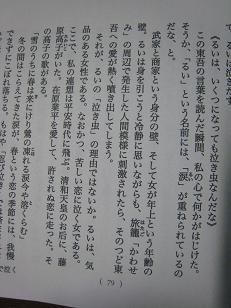 て、るいは泣きだす
《るいは、いくつになっても泣き虫なんだな》
この東吾の言葉を読んだ瞬間、私の心で何かがはじけた。
そうか、「るい」という名前には、「涙」が重ねられているの
だな、と。
武家と商家という身分の壁、そして女が年上という年齢の
壁。るいは身を引こうと冷静に思いながらも、旅籠「かわせ
み」の周辺で発生した人間模様に刺激されたら、そのつど東
吾への愛が熱く噴き出してしまう。
それが、るいの「泣き虫」の理由ではないか。るいは、気
品のある女性である。なおかつ、苦しい恋に泣く女である。
ここで、私の連想は平安時代に飛ぶ。清和天皇のお后に、藤
原高子がいた。在原業平を愛して、許されぬ恋に走った。そ
の高子の歌がある。
「雪のうちに春は来にけり鶯の凍れる涙今や溶くらむ」
冬の間はこらえてきた涙が、春という恋の季節には、我慢
できずにこぼれ落ちる。もはや「忍び泣き」で
( 79 )